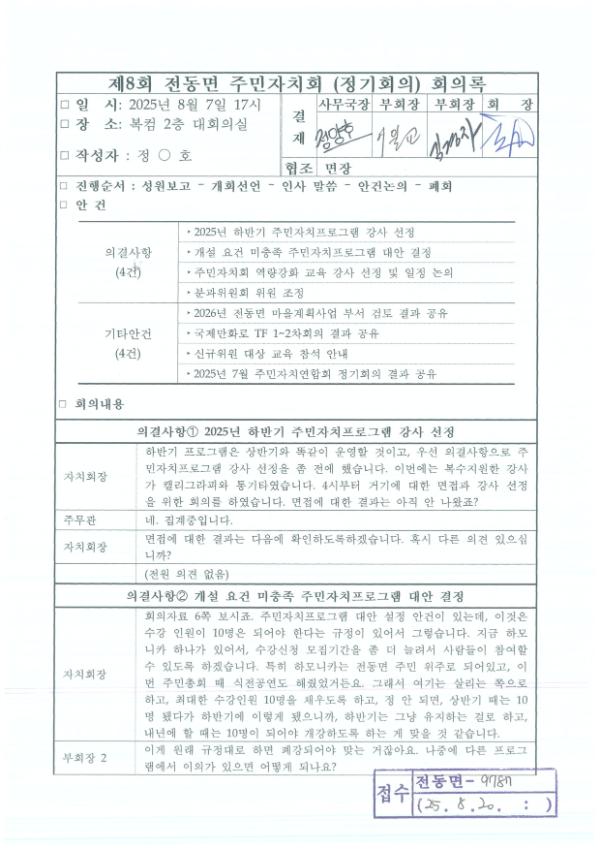 제8회 전동면 주민자치회 (정기회의) 회의록
□ 일 시: 2025년 8월 7일 17시
□ 장 소: 복컴 2층 대회의실
□ 작성자 : 정 ○ 호
결
재
사무국장 부회장 부회장 회 장
협조 면장
□ 진행순서 : 성원보고 - 개회선언 - 인사 말씀 - 안건논의 - 폐회
□ 안 건
의결사항
(4건)
・2025년 하반기 주민자치프로그램 강사 선정
・개설 요건 미충족 주민자치프로그램 대안 결정
・주민자치회 역량강화 교육 강사 선정 및 일정 논의
・분과위원회 위원 조정
기타안건
(4건)
・2026년 전동면 마을계획사업 부서 검토 결과 공유
・국제만화로 TF 1~2차회의 결과 공유
・신규위원 대상 교육 참석 안내
・2025년 7월 주민자치연합회 정기회의 결과 공유
□ 회의내용
의결사항① 2025년 하반기 주민자치프로그램 강사 선정
자치회장
하반기 프로그램은 상반기와 똑같이 운영할 것이고, 우선 의결사항으로 주
민자치프로그램 강사 선정을 좀 전에 했습니다. 이번에는 복수지원한 강사
가 캘리그라피와 통기타였습니다. 4시부터 거기에 대한 면접과 강사 선정
을 위한 회의를 하였습니다. 면접에 대한 결과는 아직 안 나왔죠?
주무관
네. 집계중입니다.
자치회장
면접에 대한 결과는 다음에 확인하도록하겠습니다. 혹시 다른 의견 있으십
니까?
(전원 의견 없음)
의결사항② 개설 요건 미충족 주민자치프로그램 대안 결정
자치회장
회의자료 6쪽 보시죠. 주민자치프로그램 대안 설정 안건이 있는데, 이것은
수강 인원이 10명은 되어야 한다는 규정이 있어서 그렇습니다. 지금 하모
니카 하나가 있어서, 수강신청 모집기간을 좀 더 늘려서 사람들이 참여할
수 있도록 하겠습니다. 특히 하모니카는 전동면 주민 위주로 되어있고, 이
번 주민총회 때 식전공연도 해줬었거든요. 그래서 여기는 살리는 쪽으로
하고, 최대한 수강인원 10명을 채우도록 하고, 정 안 되면, 상반기 때는 10
명 됐다가 하반기에 이렇게 됐으니까, 하반기는 그냥 유지하는 걸로 하고,
내년에 할 때는 10명이 되어야 개강하도록 하는 게 맞을 것 같습니다.
부회장 2
이게 원래 규정대로 하면 폐강되어야 맞는 거잖아요. 나중에 다른 프로그
램에서 이의가 있으면 어떻게 되나요?
접수
전동면- 9787
(25. 8. 20. : )